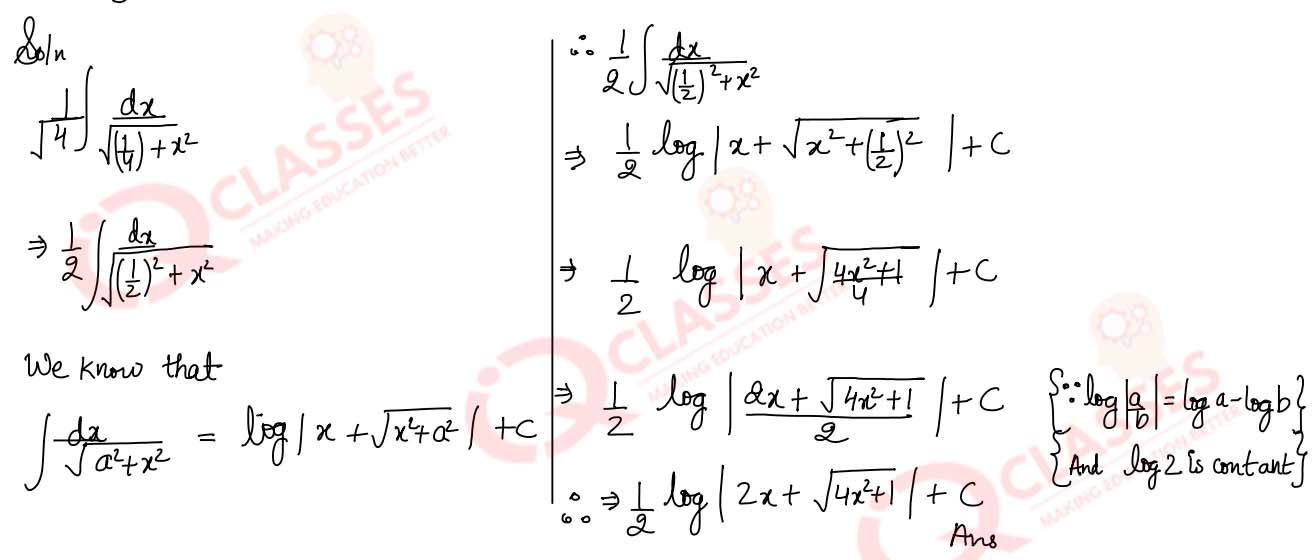 Soln
1/√4 ∫ dx/√((1/4) + x²)
⇒ 1/2 ∫ dx/√((1/2)² + x²)
We know that
∫ dx/√(a²+x²) = log|x + √(x²+a²)| + C
∴ 1/2 ∫ dx/√((1/2)² + x²)
⇒ 1/2 log|x + √(x² + (1/2)²)| + C
⇒ 1/2 log|x + √((4x²+1)/4)| + C
⇒ 1/2 log|(2x + √(4x²+1))/2| + C
{∵ log|a/b| = log a - log b}
{And log 2 is contant}
∴ ⇒ 1/2 log|2x + √(4x²+1)| + C
Ans
iQ CLASSES
MAKING EDUCATION BETTER
iQ CLASSES
MAKING EDUCATION BETTER
iQ CLASSES
MAKING EDUCATION BETTER